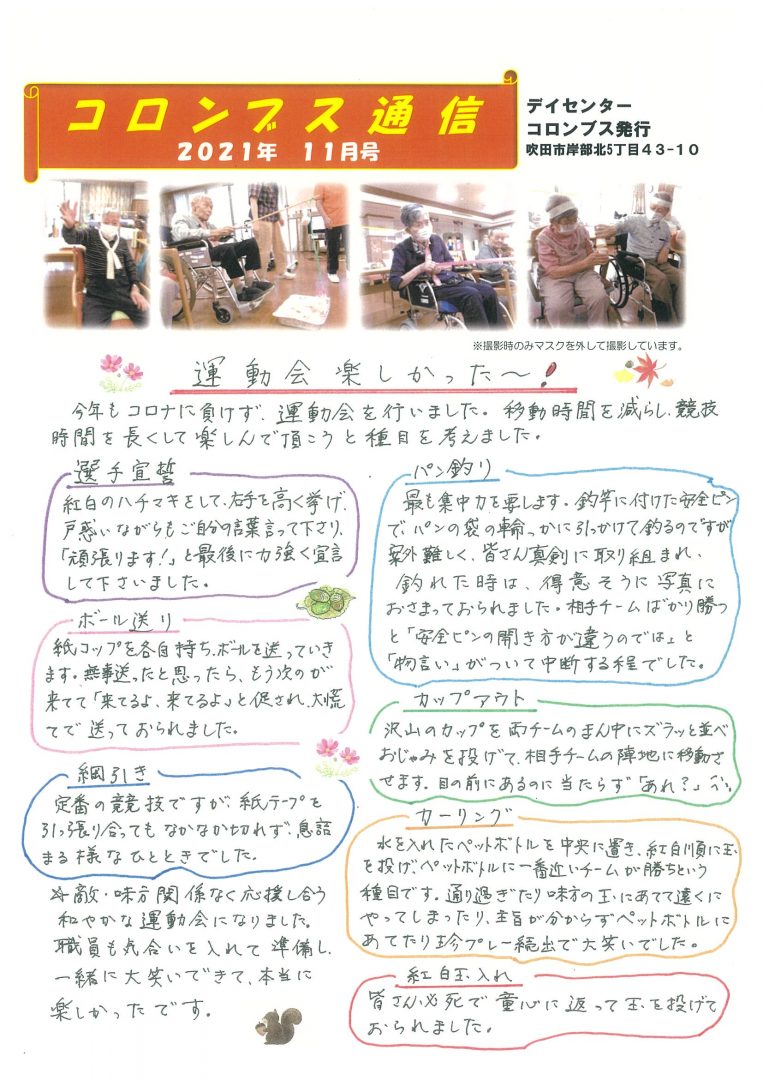 コロンブス通信
2021年 11月号
デイセンター
コロンブス発行
吹田市岸部北5丁目43-10
※撮影時のみマスクを外して撮影しています。
運動会楽しかった〜!
今年もコロナに負けず、運動会を行いました。移動時間を減らし、競技
時間を長くして楽しんで頂こうと種目を考えました。
選手宣誓
紅白のハチマキをして、右手を高く挙げ、
戸惑いながらもご自分の言葉言って下さり、
「頑張ります!」と最後に力強く宣言
して下さいました。
ボール送り
紙コップを各自持ち、ボールを送っていき
ます。無事送ったと思ったら、もう次のが
来てて「来てるよ、来てるよ」と促され、大慌
てで送っておられました。
綱引き
定番の競技ですが、紙テープを
引っ張り合ってもなかなか切れず、息詰
まる様なひとときでした。
☆敵・味方関係なく応援し合う
和やかな運動会になりました。
職員も気合いを入れて準備し、
一緒に大笑いできて、本当に
楽しかったです。
パン釣り
最も集中力を要します。釣竿に付けた安全ピン
で、パンの袋の輪っかに引っかけて釣るのですが
案外難しく、皆さん真剣に取り組まれ、
釣れた時は、得意そうに写真に
おさまっておられました。相手チームばかり勝つ
と「安全ピンの開き方が違うのでは」と
「物言い」がついて中断する程でした。
カップアウト
沢山のカップを両チームのまん中にズラッと並べ
おじゃみを投げて、相手チームの陣地に移動さ
せます。目の前にあるのに当たらず「あれ?」
カーリング
水を入れたペットボトルを中央に置き、紅白順に玉
を投げ、ペットボトルに一番近いチームが勝ちという
種目です。通り過ぎたり味方の玉にあてて遠くに
やってしまったり、主旨が分からずペットボトルに
あてたり珍プレー続出で大笑いでした。
紅白玉入れ
皆さん必死で童心に返って玉を投げて
おられました。